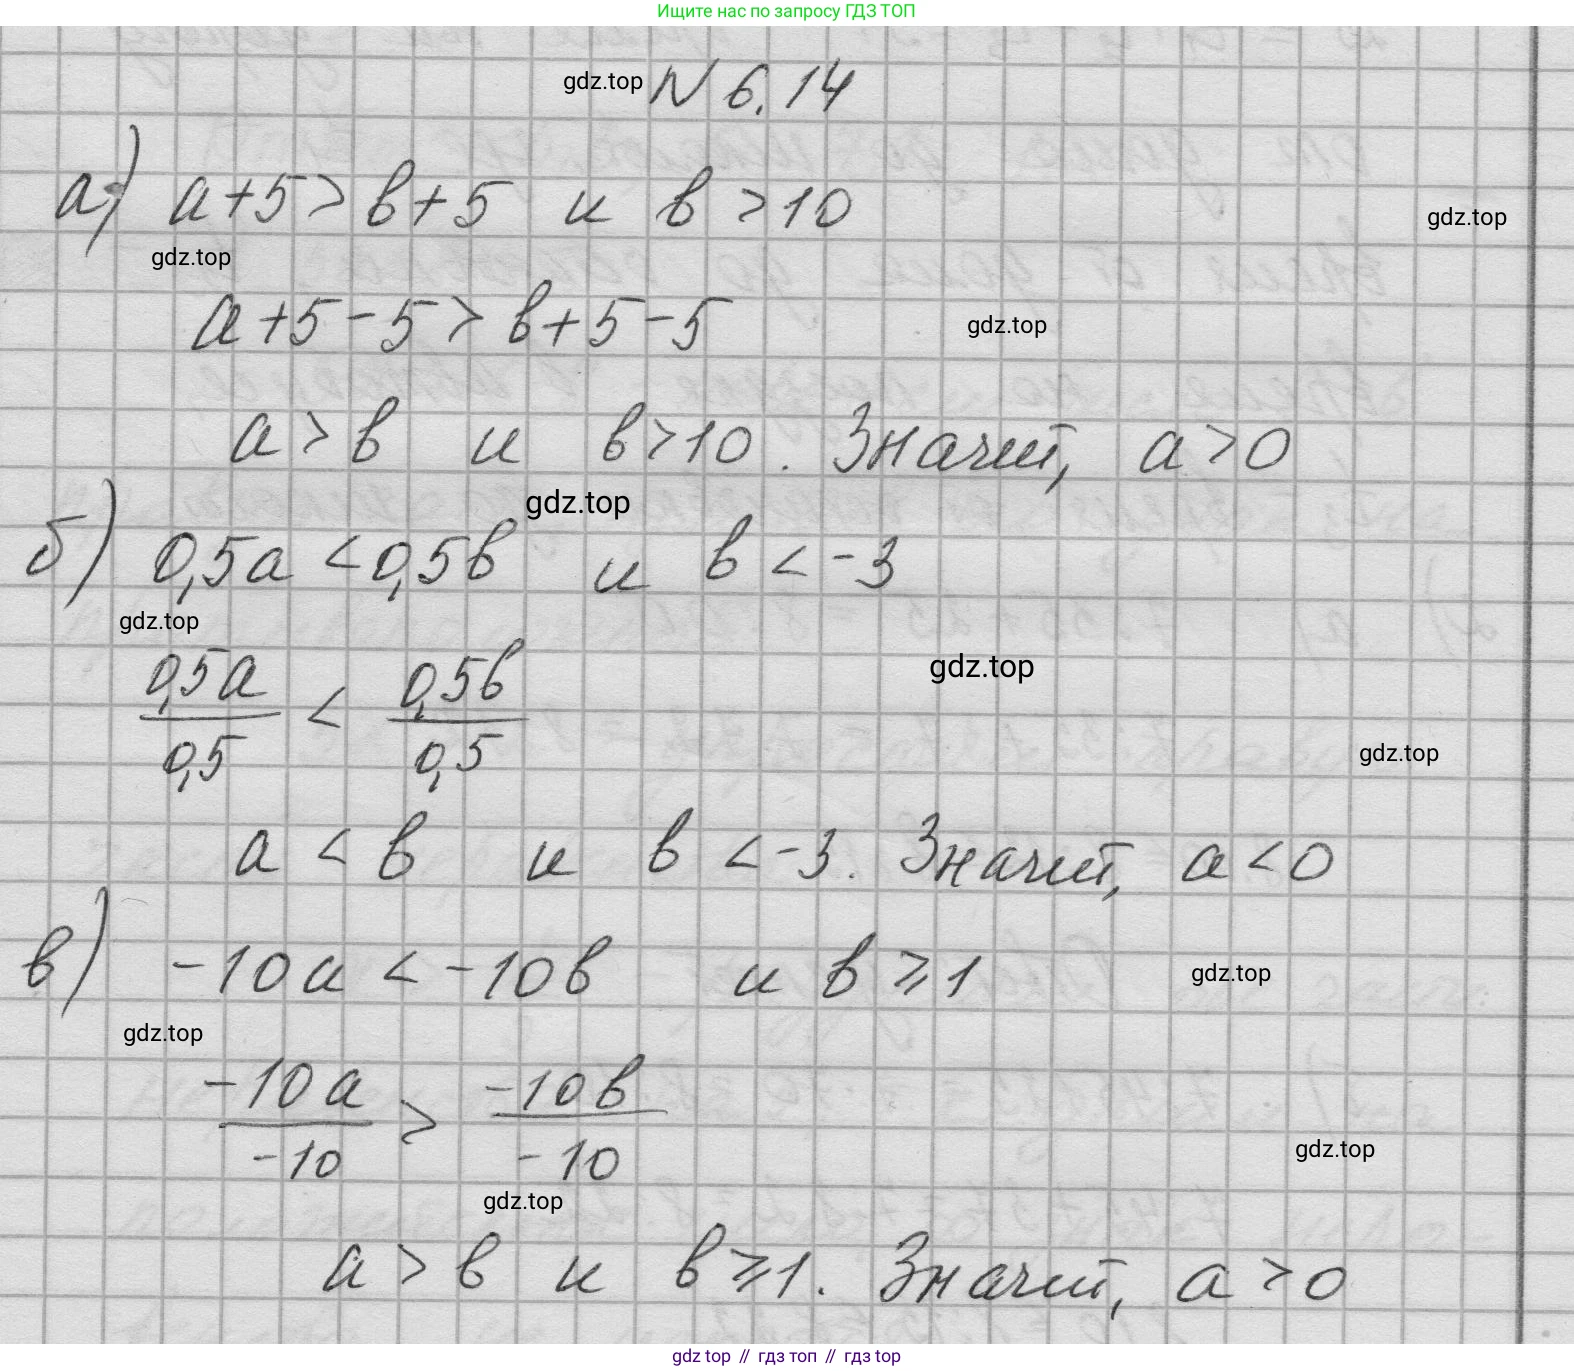 Ищите нас по запросу ГДЗ ТОП
gdz.top N 6.14
а) a+5>b+5 и b>10
gdz.top
gdz.top
a+5-5>b+5-5
gdz.top
a>b и b>10. Значит, a>0
gdz.top
б) 0,5a<0,5b и b<-3
gdz.top
0,5a < 0,5b
0,5 0,5
gdz.top
gdz.top
a<b и b<-3. Значит, a<0
в) -10a<-10b и b⩾1
gdz.top
gdz.top
-10a > -10b
-10 -10
gdz.top
gdz.top
a>b и b⩾1. Значит, a>0
gdz top // гдз топ // гдз top